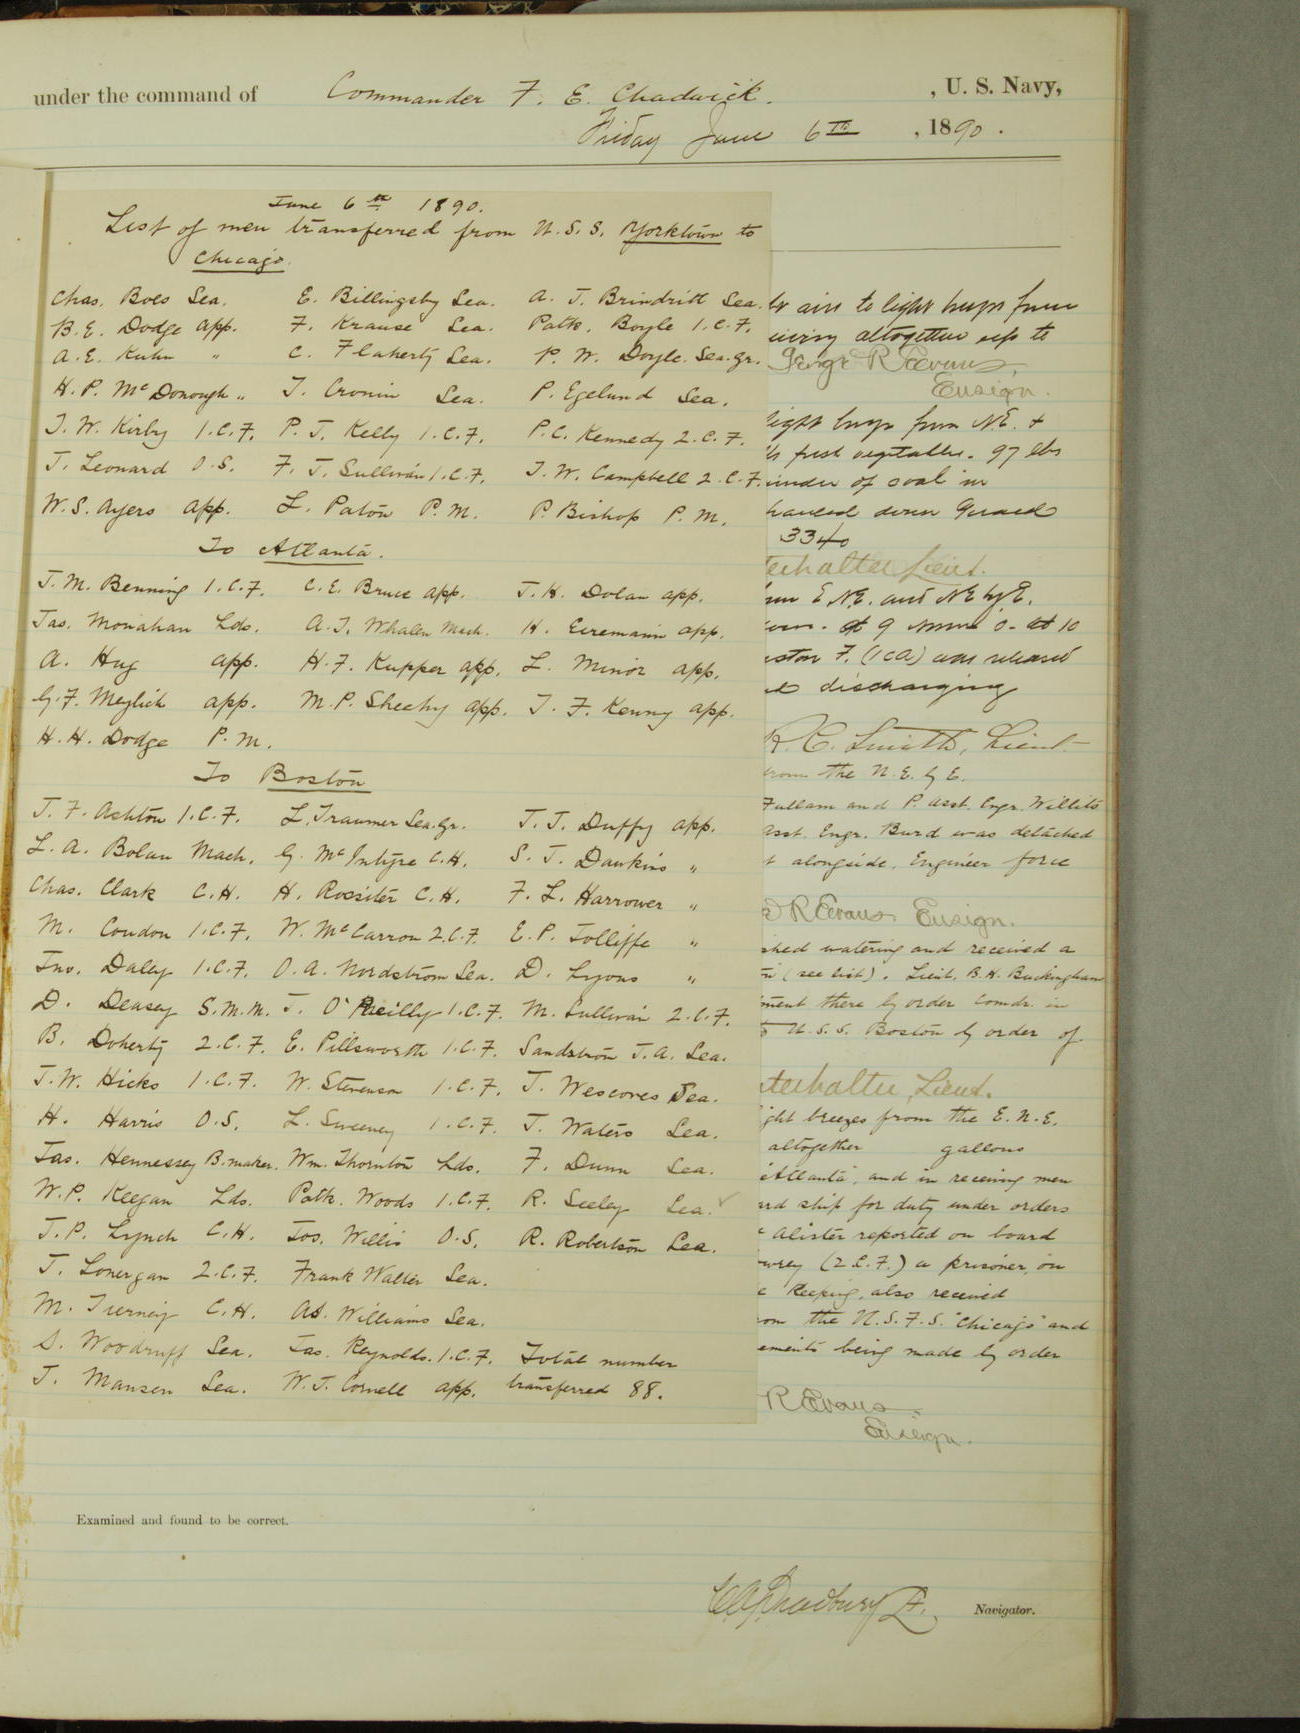 under the command of Commander F. E. Chadwick. , U. S. Navy,
Friday June 6th , 1890.
June 6th 1890.
List of men transferred from U.S.S. Yorktown to
Chicago.
Chas. Boes Sea. E. Billingsby Sea. A. J. Brindritt Sea.
B.E. Dodge app. F. Krause Sea. Patk. Boyle 1.C.F.
A.E. Kuhn " C. Flaherty Sea. P. W. Doyle Sea.gr.
H. P. McDonough " T. Cronin Sea. P. Egelund Sea.
J. W. Kirby 1.C.F. P. J. Kelly 1.C.F. P.C. Kennedy 2.C.F.
J. Leonard O.S. F. J. Sullivan 1.C.F. J. W. Campbell 2.C.F.
W.S. Ayers app. L. Paton P.M. P. Bishop P.M.
To Atlanta.
J. M. Benning 1.C.F. C.E. Bruce app. J. H. Dolan app.
Jas. Monahan Lds. A. J. Whalen Mach. H. Eiremann app.
A. Hug app. H. F. Kupper app. L. Minor app.
G. F. Meylich app. M. P. Sheehy app. J. F. Kenny app.
H. H. Dodge P.M.
To Boston
J. F. Ashton 1.C.F. L. Traumer Sea.Gr. J. J. Duffy app.
L. A. Bolan Mach. G. McIntyre C.H. S. J. Dawkins "
Chas. Clark C.H. H. Rossiter C.H. F. L. Harrower "
M. Condon 1.C.F. W. McCarron 2.C.F. E. P. Jolliffe "
Jno. Daley 1.C.F. O. A. Nordstrom Sea. D. Lyons "
D. Deasey S.M.M. J. O'Reilly 1.C.F. M. Sullivan 2.C.F.
B. Doherty 2.C.F. E. Pillsworth 1.C.F. Sandstrom J.A. Sea.
J. W. Hicks 1.C.F. W. Stevenson 1.C.F. J. Wescores Sea.
H. Harris O.S. L. Sweeney 1.C.F. J. Waters Sea.
Jas. Hennessey B.maker. Wm. Thornton Lds. F. Dunn Sea.
W. P. Keegan Lds. Patk. Woods 1.C.F. R. Seeley Sea.
J. P. Lynch C.H. Jos. Willis O.S. R. Robertson Sea.
J. Lonergan 2.C.F. Frank Walter Sea.
M. Tierney C.H. Ad. Williams Sea.
S. Woodruff Sea. Jas. Reynolds. 1.C.F. Total number
J. Mansen Sea. W. J. Cornell app. transferred 88.
airs to light
altogether up to
George R Evans,
Ensign.
light from N.E. &
fresh vegetables. 97 lbs
of coal in
hauled down Guard
3340
Lieut.
E N.E. and N E by E.
At 9 0 - at 10
F. (1ca) was released
discharging
R. C. Smith, Lieut.
from the N. E. by E.
Fullam and P. Asst. Engr. Willits
Asst. Engr. Burd was detached
alongside. Engineer force
R Evans Ensign.
watering and received a
(see list). Lieut. B. H. Buckingham
there by order Comdr. in
U.S.S. Boston by order of
Lieut.
breezes from the E.N.E.
altogether gallons
"Atlanta", and in receiving men
ship for duty under orders
Alister reported on board
(2.C.F.) a prisoner, on
keeping, also received
the U.S.F.S. "Chicago" and
being made by order
R Evans.
Ensign.
Examined and found to be correct.
Navigator.